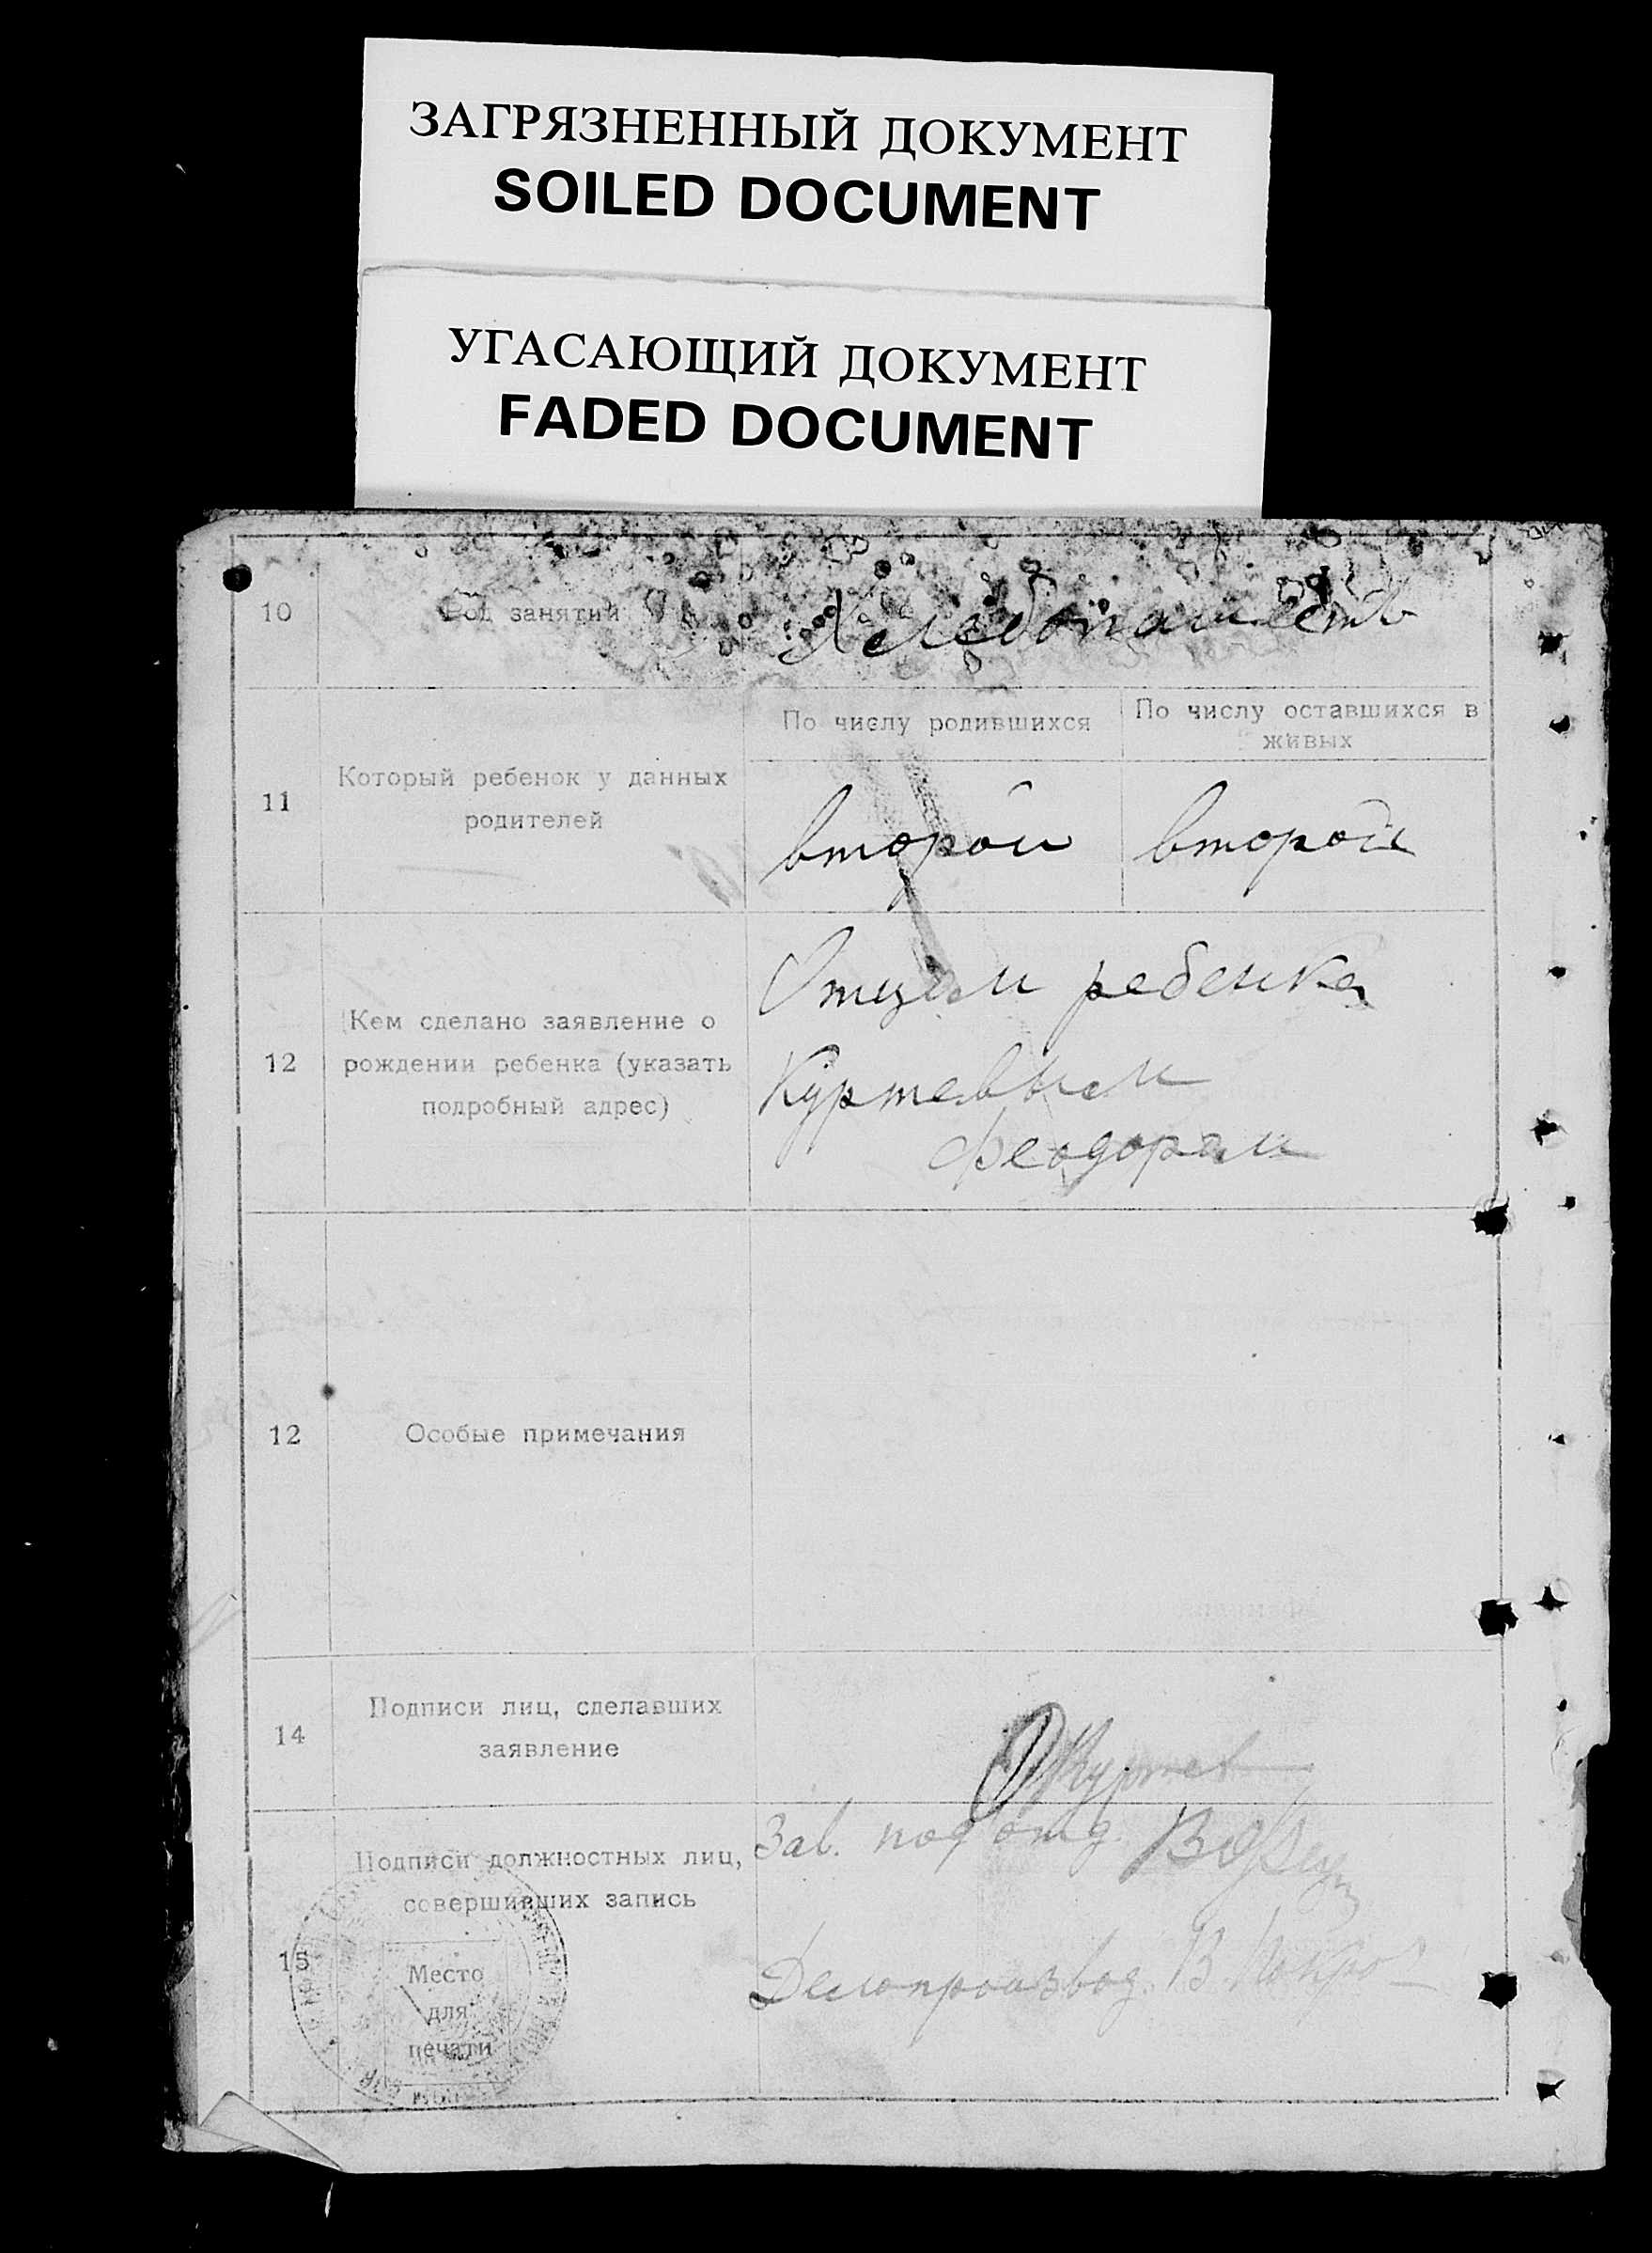 ЗАГРЯЗНЕННЫЙ ДОКУМЕНТ
SOILED DOCUMENT
УГАСАЮЩИЙ ДОКУМЕНТ
FADED DOCUMENT
10
Род занятий
11
Который ребенок у данных
родителей
По числу родившихся
По числу оставшихся в
живых
второй
второй
12
Кем сделано заявление о
рождении ребенка (указать
подробный адрес)
Отцом ребенка
Куртевым
Феодором
12
Особые примечания
14
Подписи лиц, сделавших
заявление
Куртев
15
Подписи должностных лиц,
совершивших запись
Место
для
печати
Зав. подотд.
Делопроизвод. В.